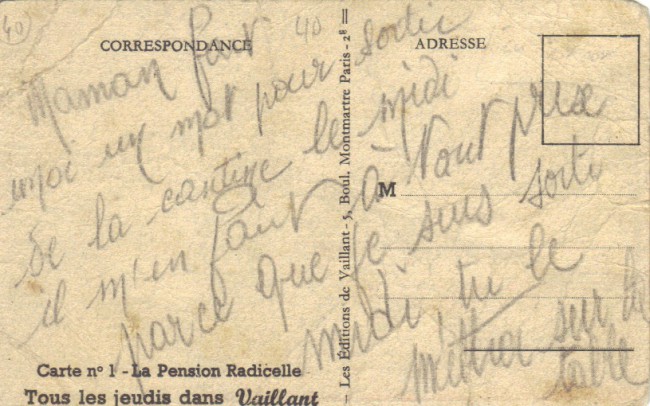 40
40
CORRESPONDANCE
ADRESSE
Maman fait
moi un mot pour sortir
de la cantine le midi
il m'en faut à tout prix
parce que je suis sorti
midi tu le
mettra sur la
table
M
Les Éditions de Vaillant - 5, Boul. Montmartre Paris - 2e
Carte n° 1 - La Pension Radicelle
Tous les jeudis dans Vaillant